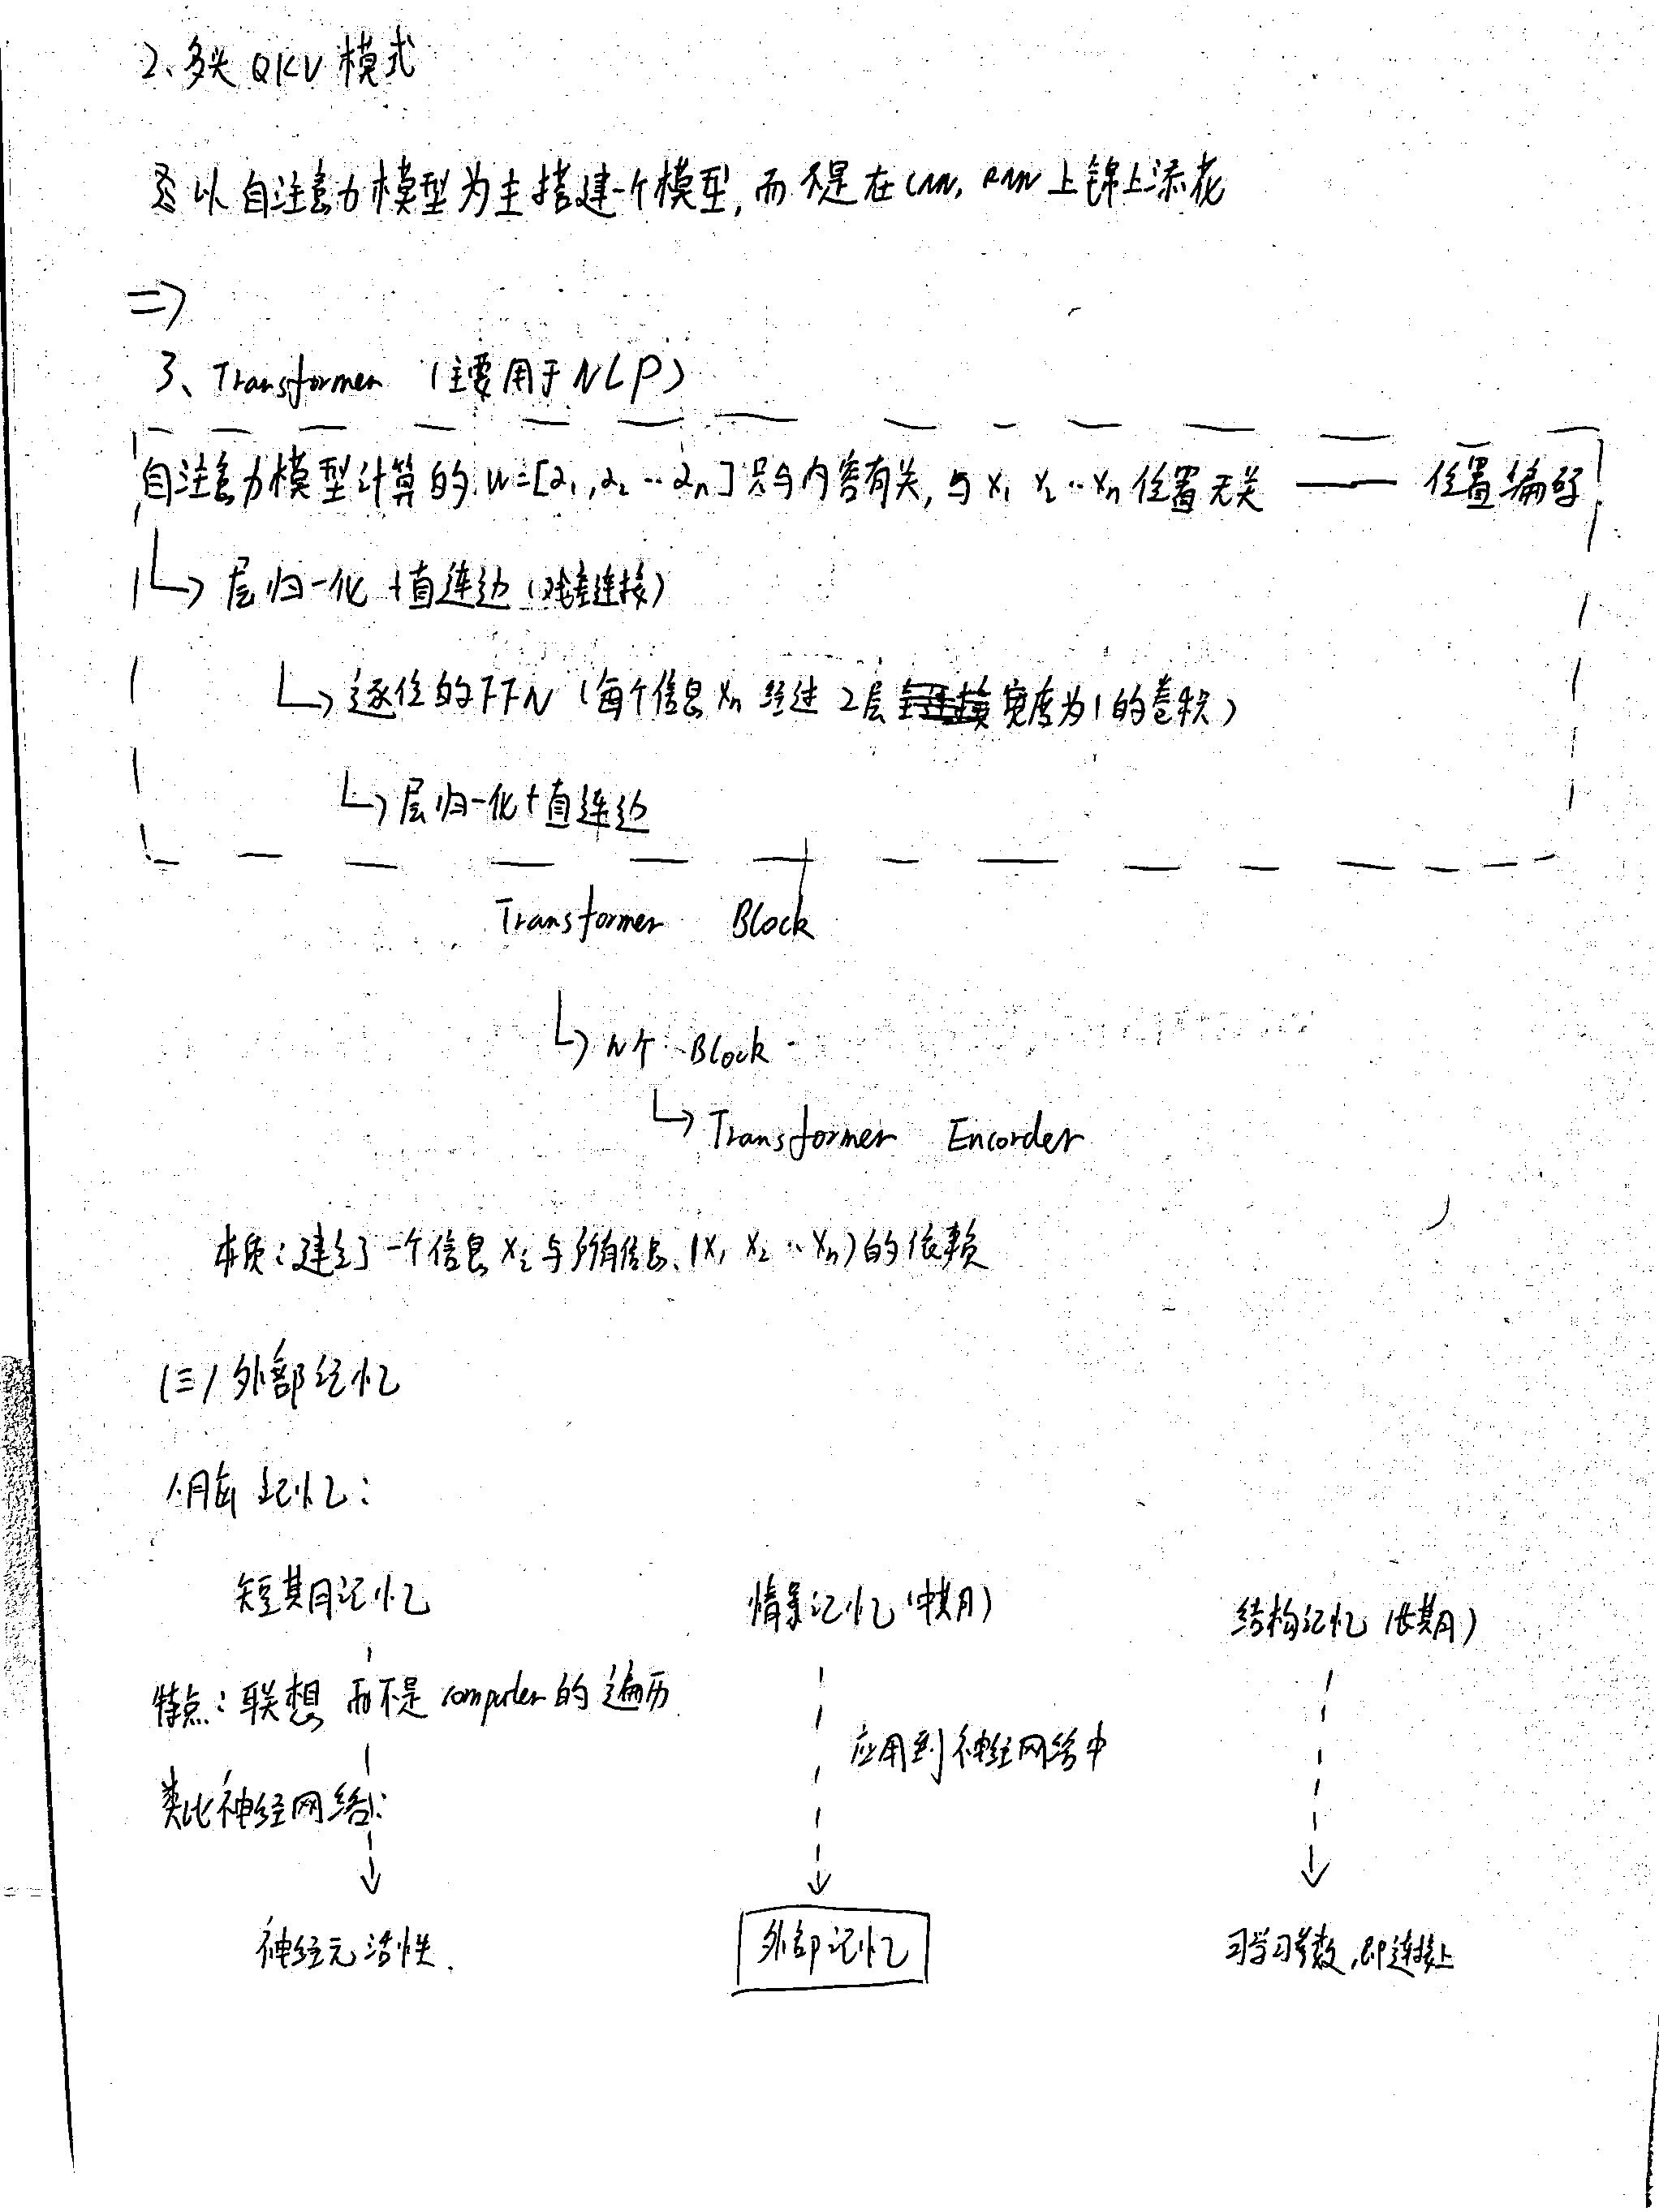 2、多头 QKV 模式
以自注意力模型为主搭建一个模型,而不是在 CNN, RNN 上锦上添花
=>
3、Transformer (主要用于NLP)
自注意力模型计算的 W=[α₁,α₂…αn] 只与内容有关,与 x₁ x₂…xn 位置无关 —— 位置编码
↳ 层归一化 + 直连边 (残差连接)
↳ 逐位的FFN (每个信息 xn 经过 2层 宽度为1的卷积)
↳ 层归一化 + 直连边
Transformer Block
↳ N个 Block
↳ Transformer Encorder
本质:建立了一个信息 xi 与所有信息 (x₁ x₂…xn) 的依赖
(三) 外部记忆
人脑记忆:
短期记忆 情景记忆 (中期) 结构记忆 (长期)
特点:联想 而不是 computer 的遍历
应用到神经网络中
类比神经网络:
神经元活性. 外部记忆 习学习参数,即连接上